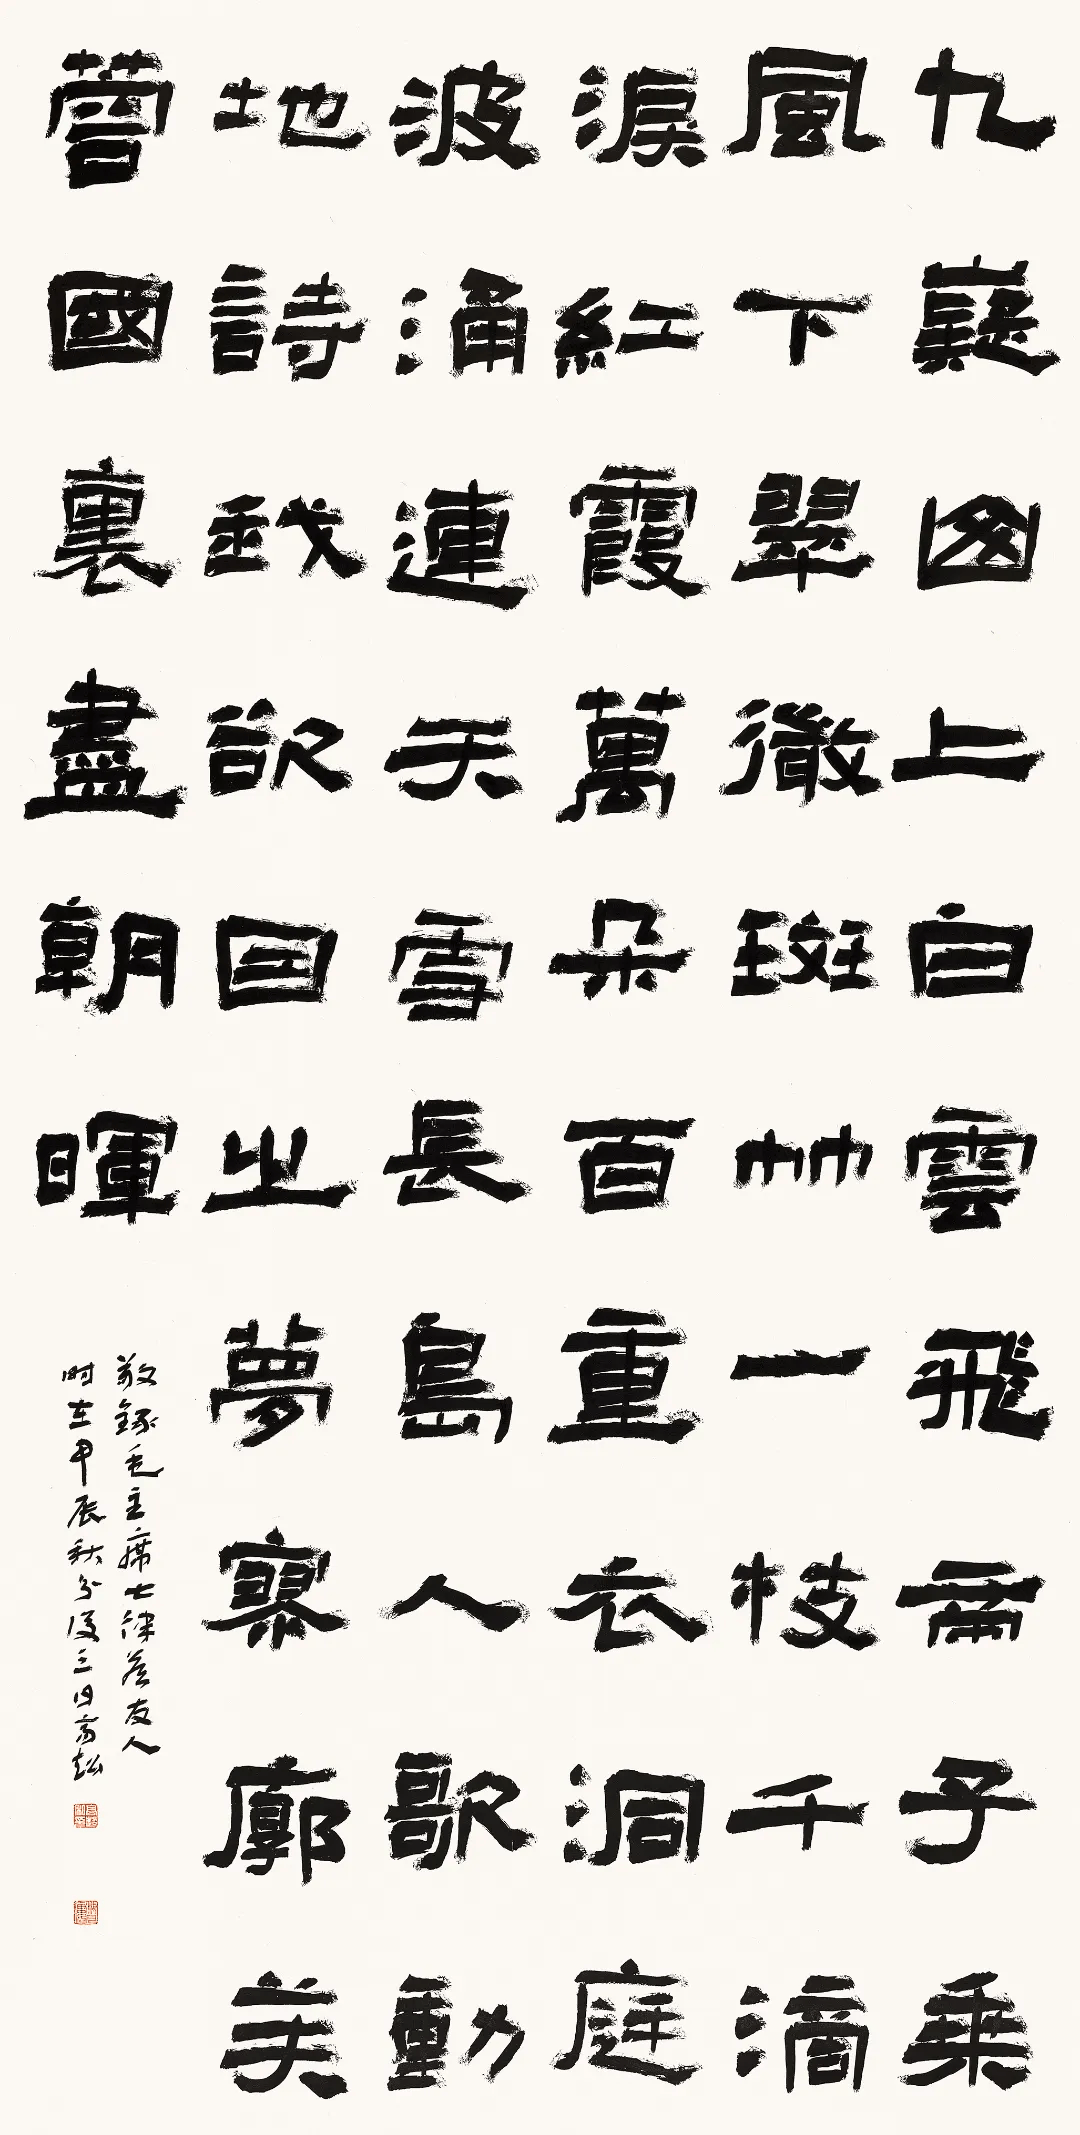 九嶷山上白雲飛帝子乘
風下翠微斑竹一枝千滴
淚紅霞萬朵百重衣洞庭
波涌連天雪長島人歌動
地詩我欲因之夢寥廓芙
蓉國裏盡朝暉
敬録毛主席七律答友人
时在甲辰秋分後三日